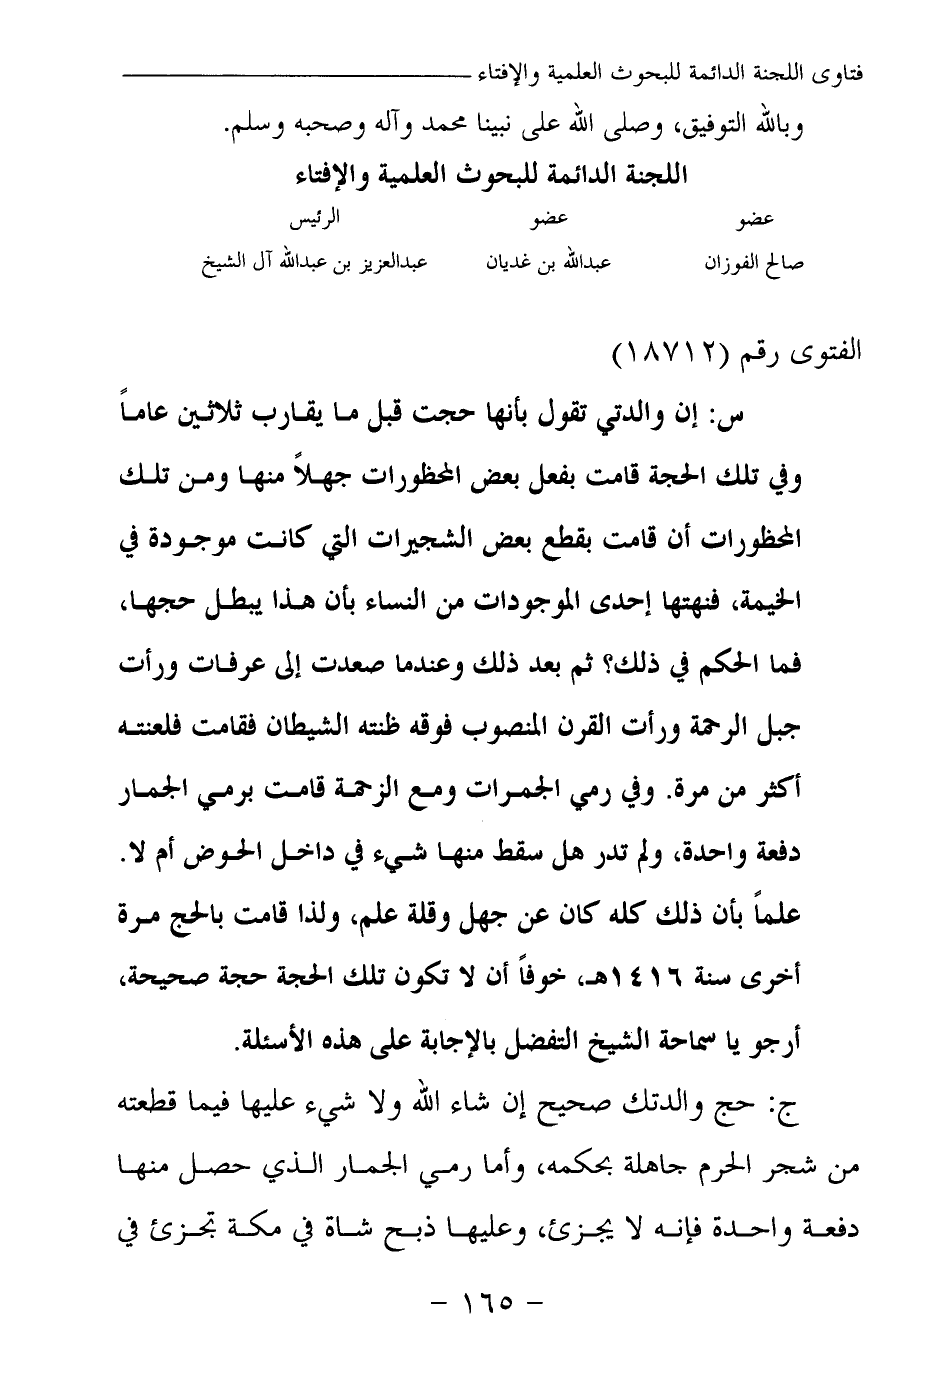 فتاوى اللجنة الدائمة للبحوث العلمية والإفتاء
وبالله التوفيق، وصلى الله على نبينا محمد وآله وصحبه وسلم.
اللجنة الدائمة للبحوث العلمية والإفتاء
عضو عضو الرئيس
صالح الفوزان عبدالله بن غديان عبدالعزيز بن عبدالله آل الشيخ
الفتوى رقم (١٨٧١٢)
س: إن والدتي تقول بأنها حجت قبل ما يقارب ثلاثين عاماً
وفي تلك الحجة قامت بفعل بعض المحظورات جهلاً منها ومن تلك
المحظورات أن قامت بقطع بعض الشجيرات التي كانت موجودة في
الخيمة، فنهتها إحدى الموجودات من النساء بأن هذا يبطل حجها،
فما الحكم في ذلك؟ ثم بعد ذلك وعندما صعدت إلى عرفات ورأت
جبل الرحمة ورأت القرن المنصوب فوقه ظنته الشيطان فقامت فلعنته
أكثر من مرة. وفي رمي الجمرات ومع الزحمة قامت برمي الجمار
دفعة واحدة، ولم تدر هل سقط منها شيء في داخل الحوض أم لا.
علماً بأن ذلك كله كان عن جهل وقلة علم، ولذا قامت بالحج مرة
أخرى سنة ١٤١٦هـ، خوفاً أن لا تكون تلك الحجة حجة صحيحة،
أرجو يا سماحة الشيخ التفضل بالإجابة على هذه الأسئلة.
ج: حج والدتك صحيح إن شاء الله ولا شيء عليها فيما قطعته
من شجر الحرم جاهلة بحكمه، وأما رمي الجمار الذي حصل منها
دفعة واحدة فإنه لا يجزئ، وعليها ذبح شاة في مكة تجزئ في
- ١٦٥ -